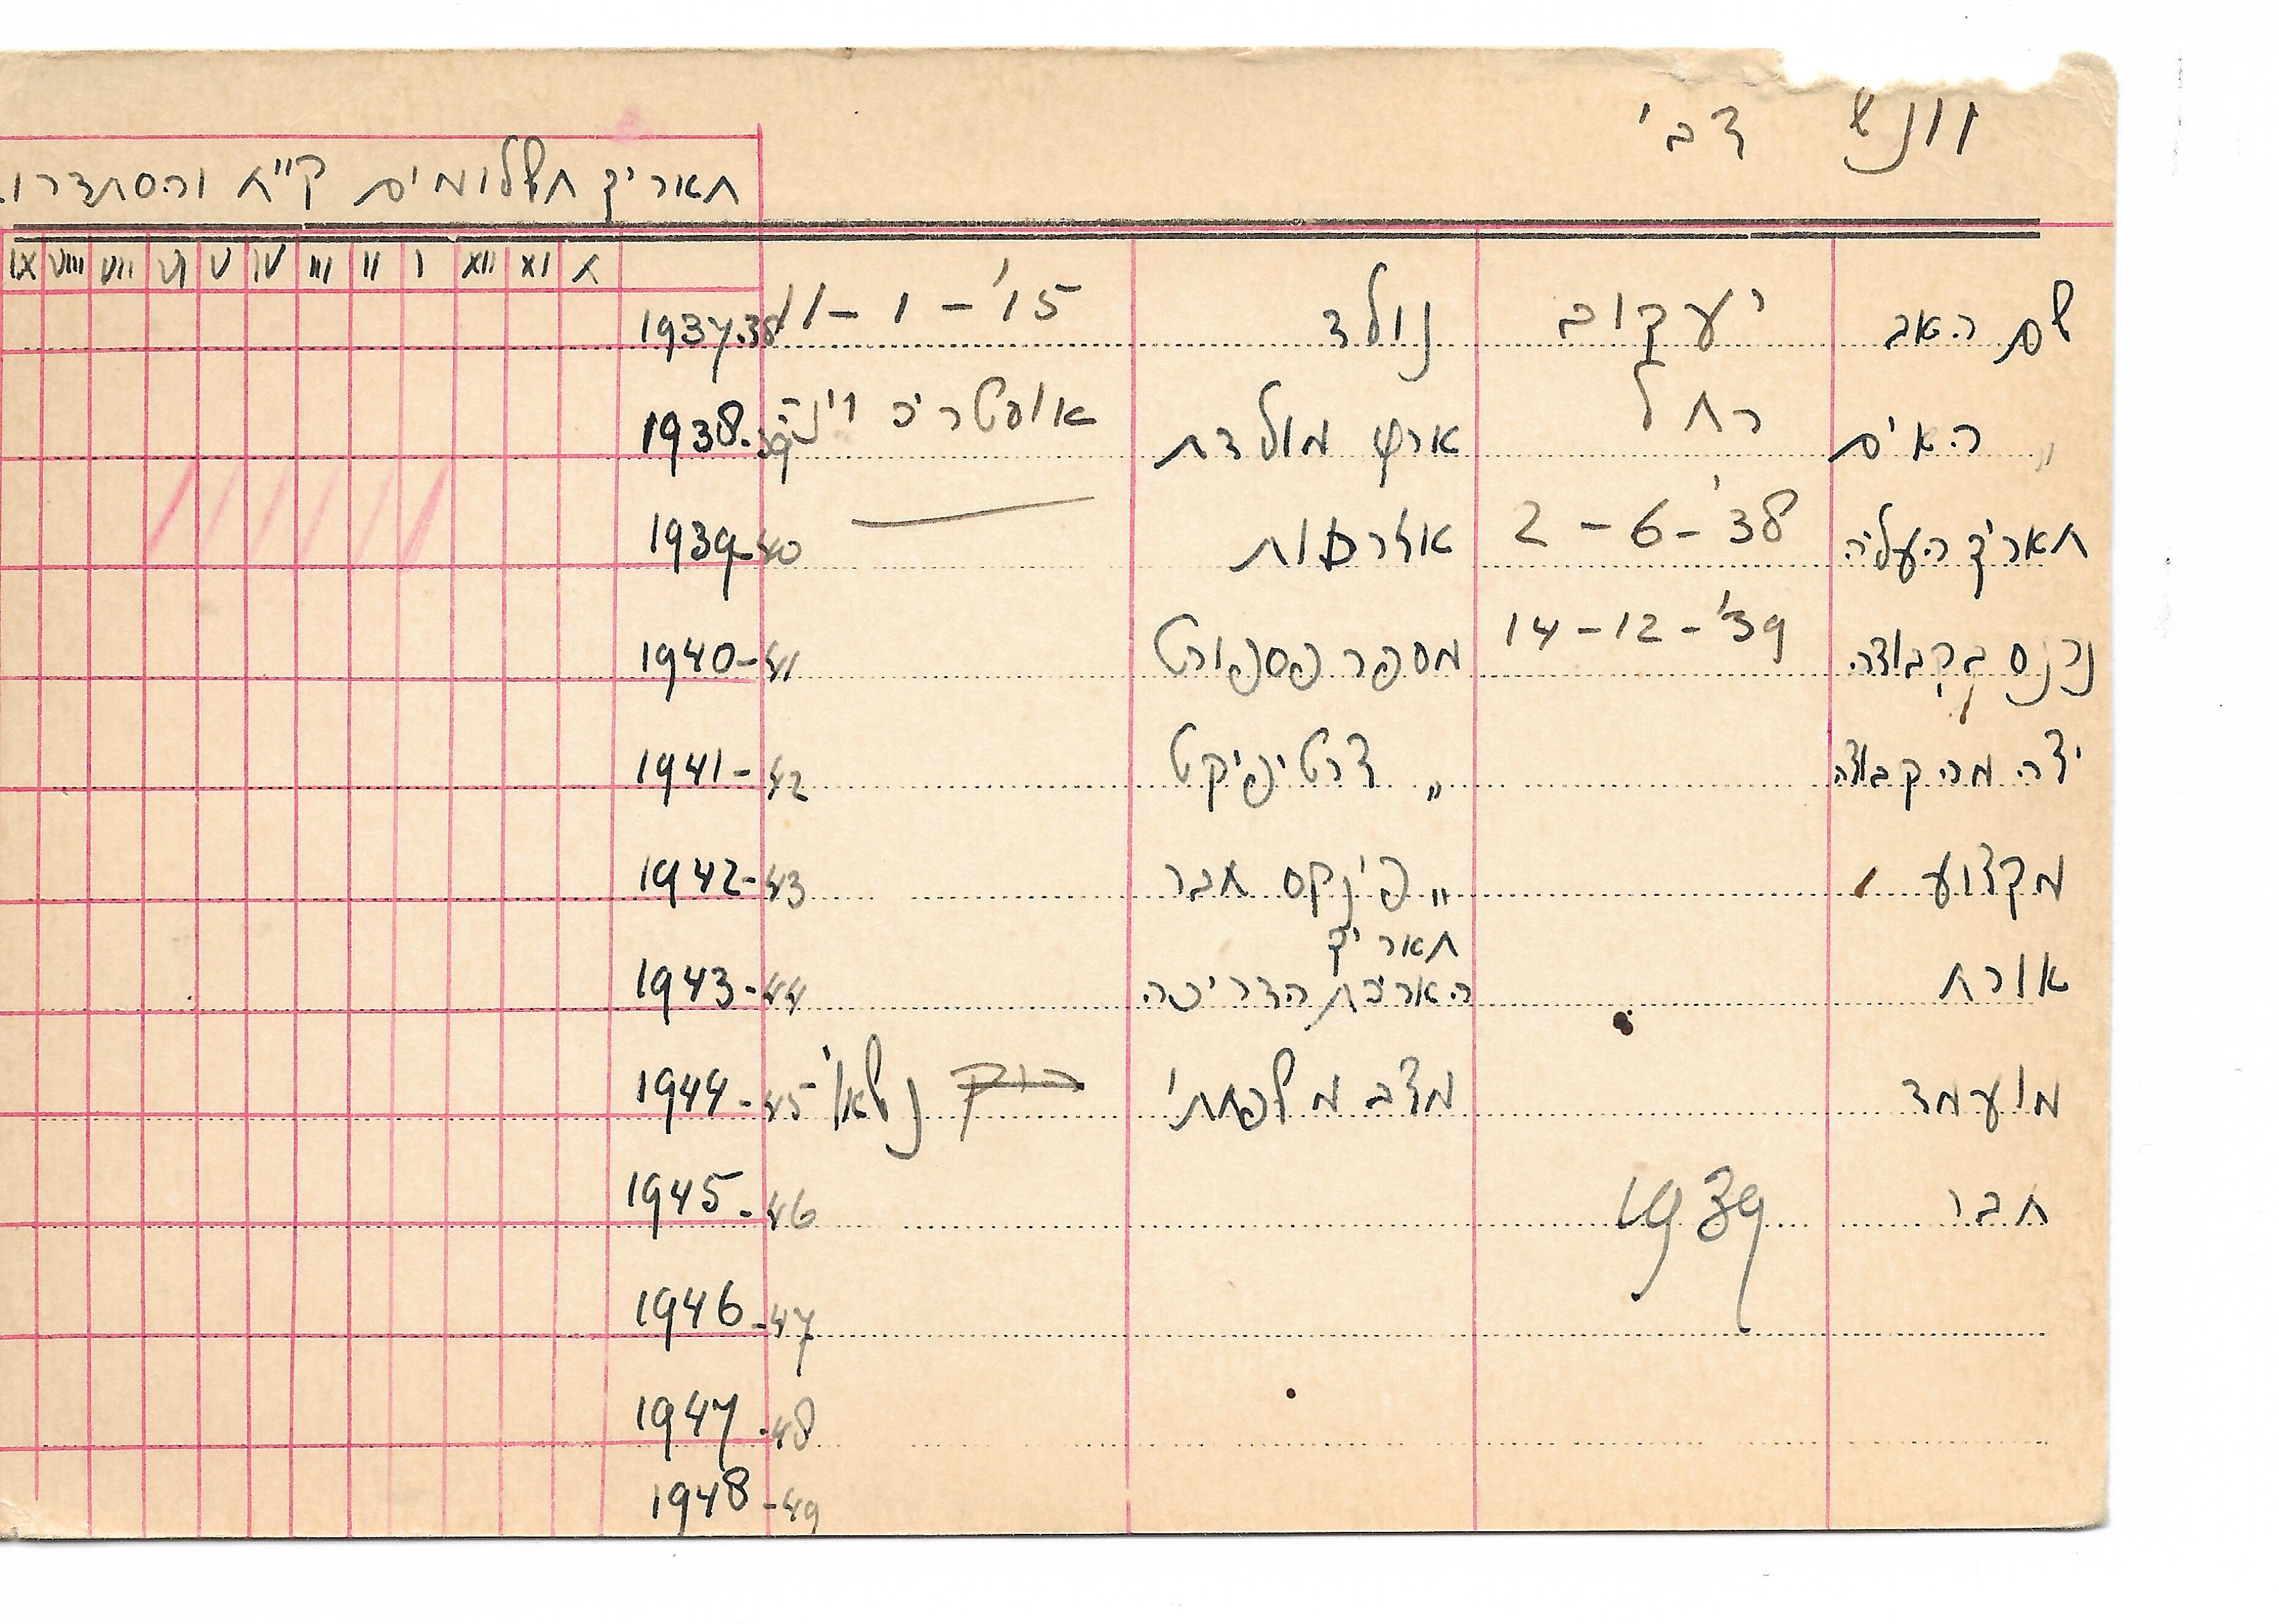 וונש צבי
תאריך תשלומים ק"ח והסתדרו
X XI XII I II III IV V VI VII VIII IX
שם האב יעקוב נולד 11-1-'15 1937.38
" האים רחל ארץ מולדת אוסטריה וינה 1938.39
תאריך העליה 2-6-'38 אזרחות — 1939-40
נכנס בקבוצה 14-12-'39 מספר פספורט 1940-41
יצא מהקבוצה " צרטיפיקט 1941-42
מקצוע " פינקס חבר 1942-43
אורח תאריך הארכת הדריכה 1943-44
מועמד מצב משפחתי רווק נשאוי 1944-45
חבר 1939 1945-46
1946-47
1947-48
1948-49